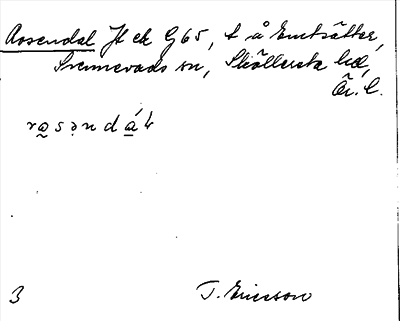 Rosendal Jt ek G65, t å Emtsätter,
Svennevads sn, Sköllersta hd,
Ör. l.
rasəndál
3 T. Ericsson